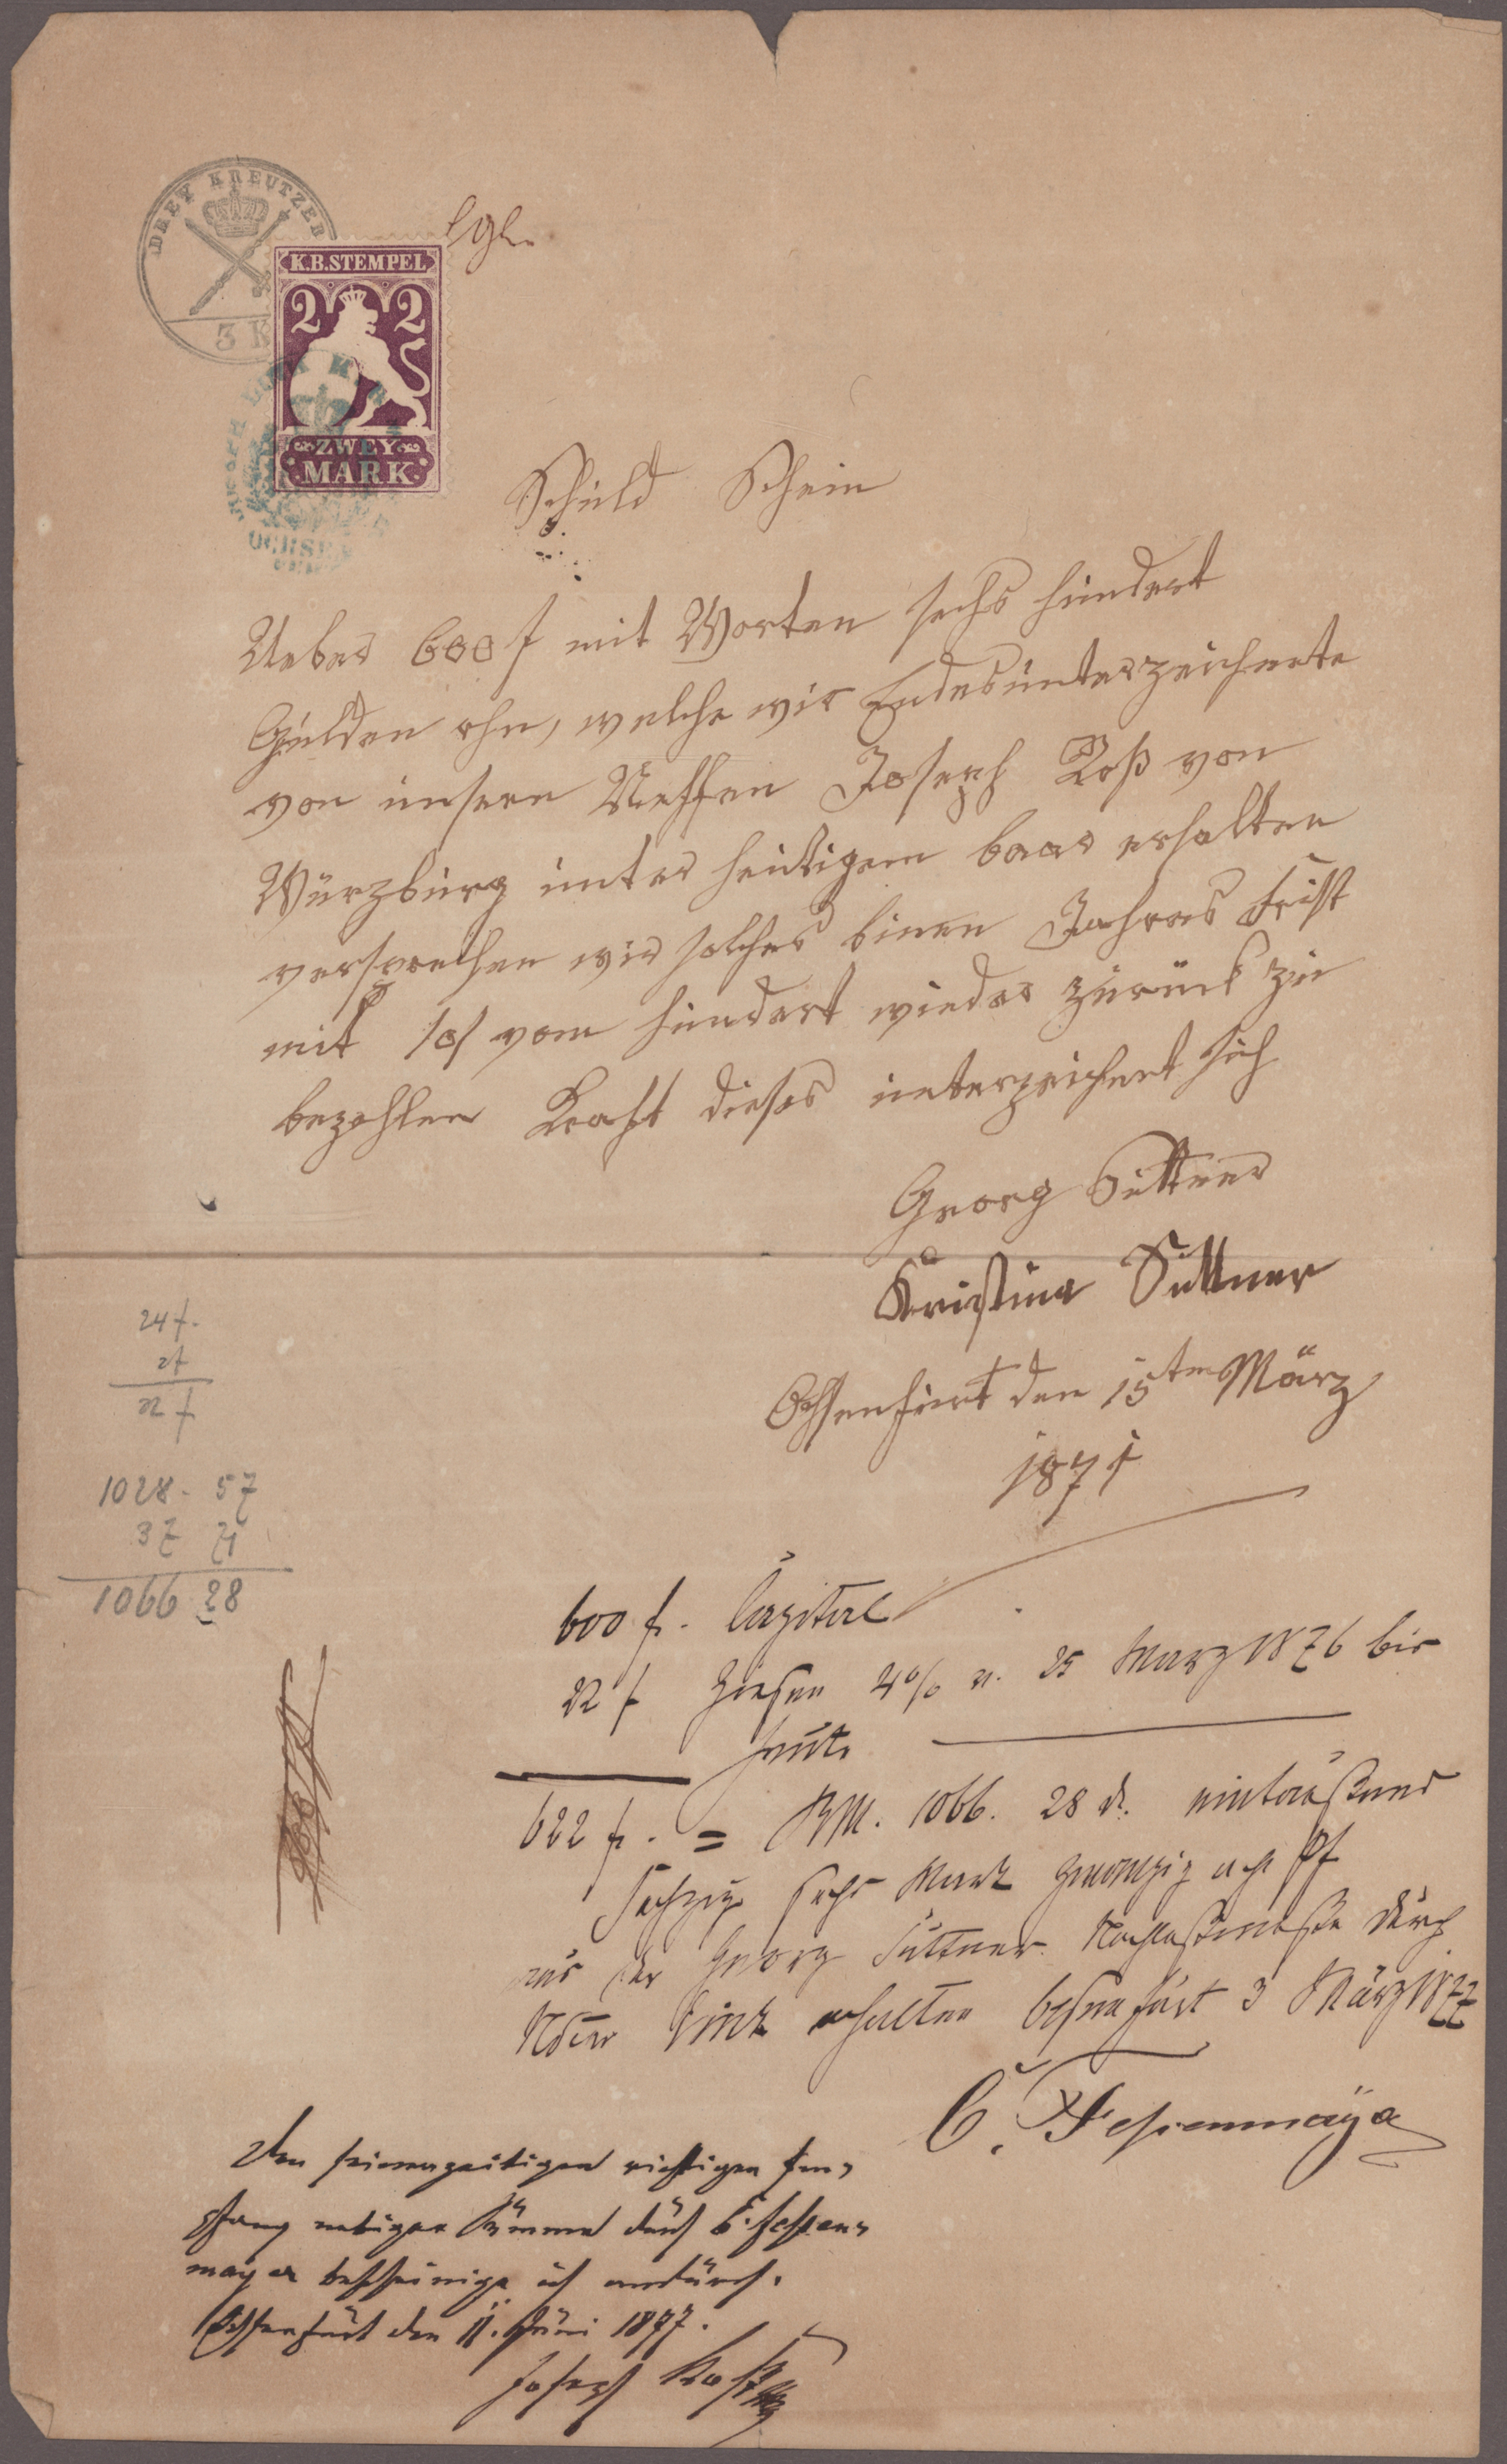 DREY KREUTZER
3 K
K.B.STEMPEL
2 2
ZWEY
MARK
OCHSEN
Schuld Schein
Ueber 600 f mit Worten sechs hundert
Gulden rhn, welche wir Endesunterzeichnete
von unsern Neffen Joseph Roß von
Würzburg unter heutigem baar erhalten
versprechen wir solches binen Jahres Frist
mit vom hundert wieder zurück zu
bezahlen Kraft dieses unterzeichent sich
Georg Suttner
Kristina Suttner
Ochsenfurt den 15ten März
1871
24 f.
2 f
22 f
1028. 57
37 71
1066 28
600 f. Capital
22 f Zinsen 4% v. 25 März 1876 bis
heute
622 f. = RM. 1066. 28 d. eintausend
sechzig sechs Mark zwanzig acht Pf
aus der Georg Suttner Nachlaßmasse durch
erhalten Ochsenfurt 3 März 1877
C. Fessenmayer
Den seinerzeitigen richtigen Em-
pfang obiger Summe durch C. Fessen-
mayer bescheinige ich andurch.
Ochsenfurt den 11. Juni 1877.
Joseph Roß